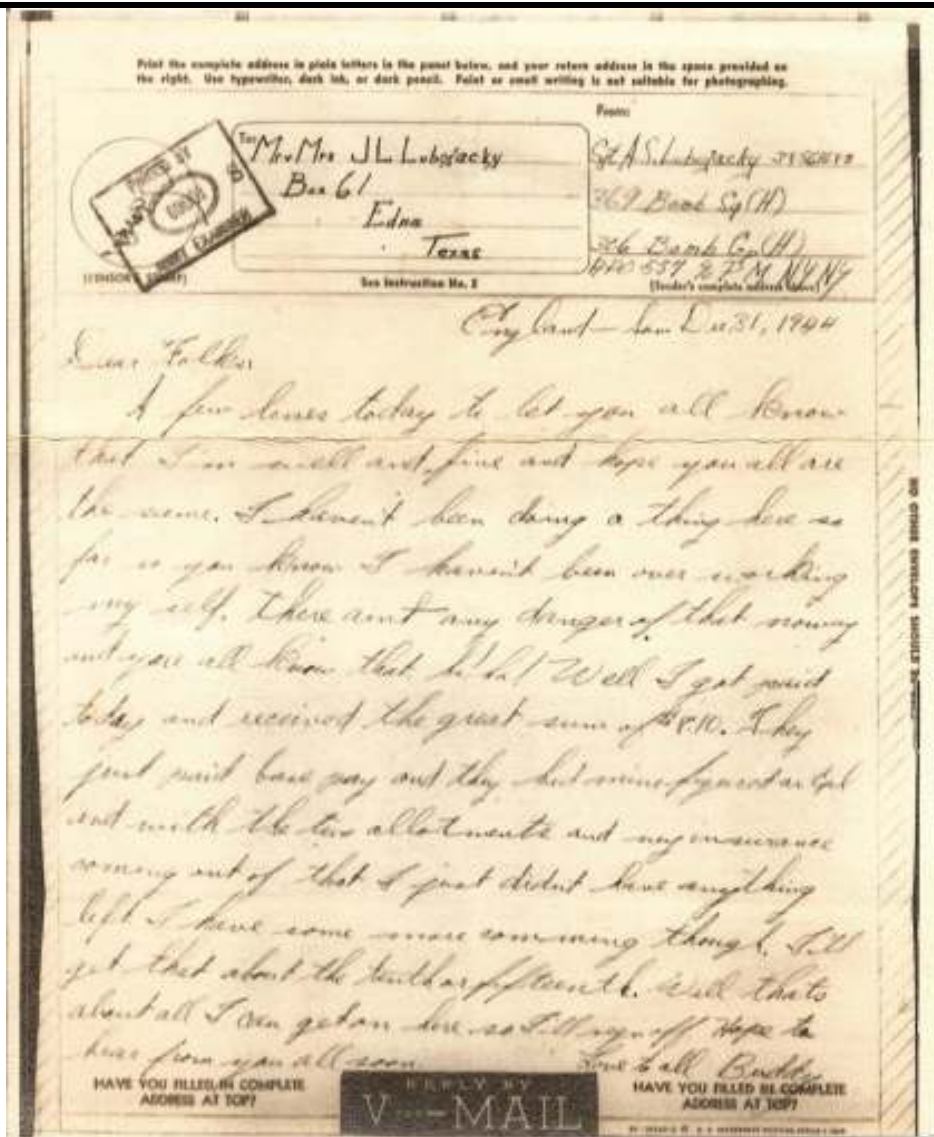 Print the complete address in plain letters in the panel below, and your return address in the space provided on
the right. Use typewriter, dark ink, or dark pencil. Faint or small writing is not suitable for photographing.
From:
To: Mr & Mrs J L Lubojacky
Box 61
Edna
Texas
Sgt A S. Lubojacky
369 Bomb Sq (H)
306 Bomb Gp (H)
APO 557 % P M NY NY
(Sender's complete address above)
PASSED BY
ARMY EXAMINER
(CENSOR'S STAMP)
See Instruction No. 2
England Dec 31, 1944
Dear Folks
A few lines today to let you all know
that I'm well and fine and hope you all are
the same. I haven't been doing a thing here so
far so you know I haven't been over working
my self. There aint any danger of that
and you all know that ha! ha! Well I got paid
today and received the great sum of $8.10. They
just paid base pay and they had mine figured as Cpl
and with the two allotments and my insurance
coming out of that I just didnt have anything
left I have some more comming though. I'll
get that about the tenth or fifteenth. Well thats
about all I can get on here so I'll sign off Hope to
hear from you all soon.
Love to all Buddy
HAVE YOU FILLED IN COMPLETE
ADDRESS AT TOP?
REPLY BY
V···—MAIL
HAVE YOU FILLED IN COMPLETE
ADDRESS AT TOP?
NO OTHER ENVELOPE SHOULD BE